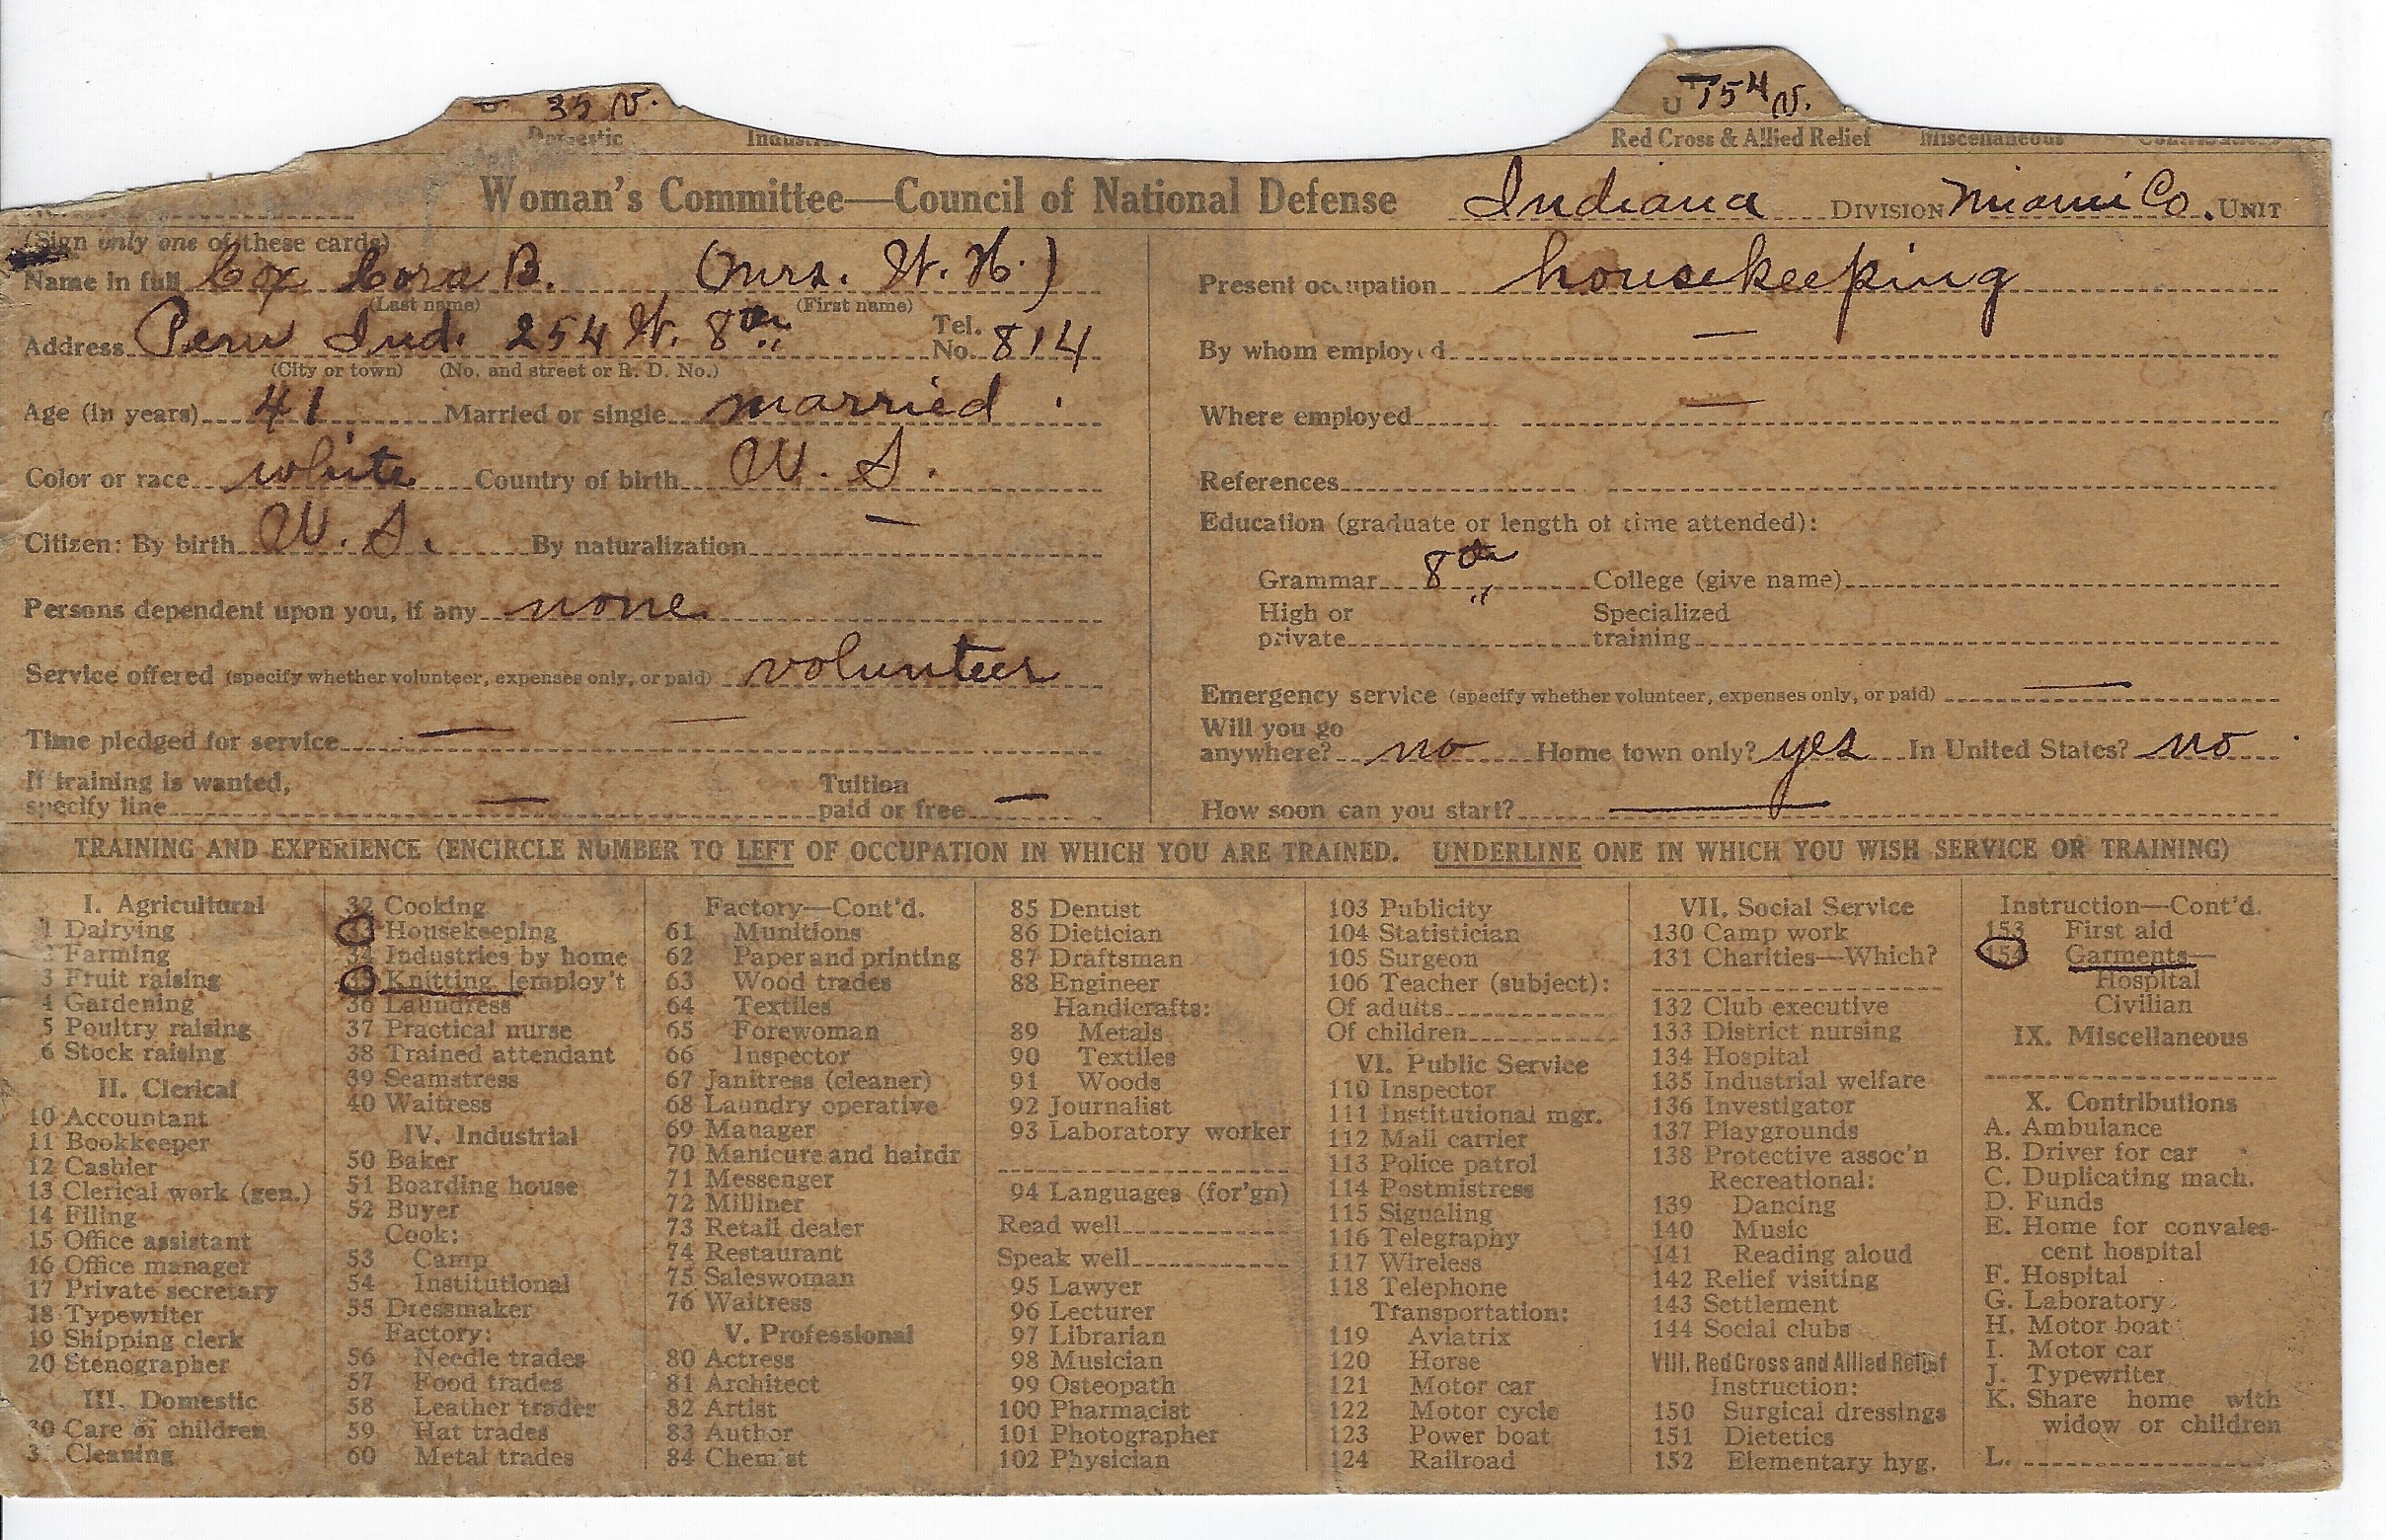 35 V.
154 V.
Domestic
Red Cross & Allied Relief Miscellaneous
Woman's Committee—Council of National Defense Indiana DIVISION Miami Co. UNIT
(Sign only one of these cards)
Name in full Cox Cora B. (Mrs. W. H.)
(Last name) (First name)
Address Peru Ind. 254 W. 8th Tel. No. 814
(City or town) (No. and street or R. D. No.)
Age (in years) 41 Married or single married
Color or race white Country of birth U. S.
Citizen: By birth U. S. By naturalization —
Persons dependent upon you, if any none
Service offered (specify whether volunteer, expenses only, or paid) volunteer
Time pledged for service — —
If training is wanted,
specify line — Tuition paid or free —
Present occupation housekeeping
By whom employed —
Where employed —
References
Education (graduate or length of time attended):
Grammar 8th College (give name)
High or private Specialized training
Emergency service (specify whether volunteer, expenses only, or paid) —
Will you go
anywhere? no Home town only? yes In United States? no
How soon can you start? —
TRAINING AND EXPERIENCE (ENCIRCLE NUMBER TO LEFT OF OCCUPATION IN WHICH YOU ARE TRAINED. UNDERLINE ONE IN WHICH YOU WISH SERVICE OR TRAINING)
I. Agricultural
1 Dairying
2 Farming
3 Fruit raising
4 Gardening
5 Poultry raising
6 Stock raising
II. Clerical
10 Accountant
11 Bookkeeper
12 Cashier
13 Clerical work (gen.)
14 Filing
15 Office assistant
16 Office manager
17 Private secretary
18 Typewriter
19 Shipping clerk
20 Stenographer
III. Domestic
30 Care of children
31 Cleaning
32 Cooking
33 Housekeeping
34 Industries by home
35 Knitting [employ't
36 Laundress
37 Practical nurse
38 Trained attendant
39 Seamstress
40 Waitress
IV. Industrial
50 Baker
51 Boarding house
52 Buyer
Cook:
53 Camp
54 Institutional
55 Dressmaker
Factory:
56 Needle trades
57 Food trades
58 Leather trades
59 Hat trades
60 Metal trades
Factory—Cont'd.
61 Munitions
62 Paper and printing
63 Wood trades
64 Textiles
65 Forewoman
66 Inspector
67 Janitress (cleaner)
68 Laundry operative
69 Manager
70 Manicure and hairdr
71 Messenger
72 Milliner
73 Retail dealer
74 Restaurant
75 Saleswoman
76 Waitress
V. Professional
80 Actress
81 Architect
82 Artist
83 Author
84 Chemist
85 Dentist
86 Dietician
87 Draftsman
88 Engineer
Handicrafts:
89 Metals
90 Textiles
91 Woods
92 Journalist
93 Laboratory worker
94 Languages (for'gn)
Read well
Speak well
95 Lawyer
96 Lecturer
97 Librarian
98 Musician
99 Osteopath
100 Pharmacist
101 Photographer
102 Physician
103 Publicity
104 Statistician
105 Surgeon
106 Teacher (subject):
Of adults
Of children
VI. Public Service
110 Inspector
111 Institutional mgr.
112 Mail carrier
113 Police patrol
114 Postmistress
115 Signaling
116 Telegraphy
117 Wireless
118 Telephone
Transportation:
119 Aviatrix
120 Horse
121 Motor car
122 Motor cycle
123 Power boat
124 Railroad
VII. Social Service
130 Camp work
131 Charities—Which?
132 Club executive
133 District nursing
134 Hospital
135 Industrial welfare
136 Investigator
137 Playgrounds
138 Protective assoc'n
Recreational:
139 Dancing
140 Music
141 Reading aloud
142 Relief visiting
143 Settlement
144 Social clubs
VIII. Red Cross and Allied Relief
Instruction:
150 Surgical dressings
151 Dietetics
152 Elementary hyg.
Instruction—Cont'd.
153 First aid
154 Garments—
Hospital
Civilian
IX. Miscellaneous
X. Contributions
A. Ambulance
B. Driver for car
C. Duplicating mach.
D. Funds
E. Home for convales-
cent hospital
F. Hospital
G. Laboratory
H. Motor boat
I. Motor car
J. Typewriter
K. Share home with
widow or children
L.